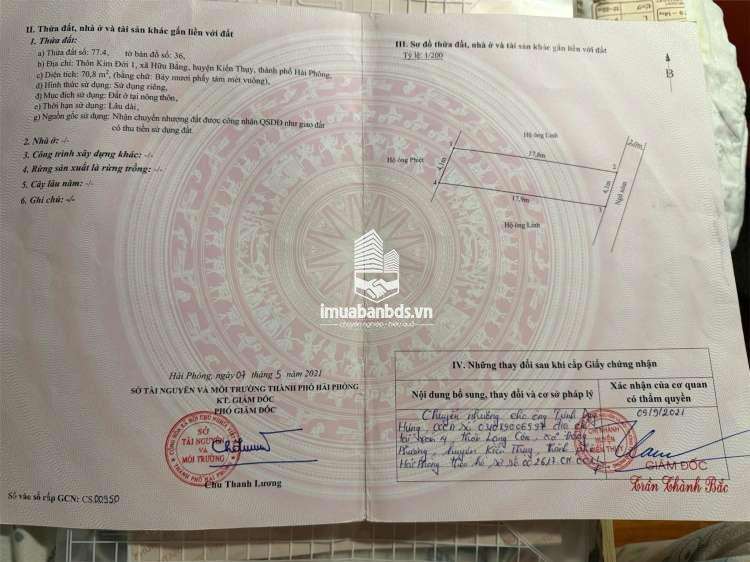 II. Thửa đất, nhà ở và tài sản khác gắn liền với đất
1. Thửa đất:
a) Thửa đất số: 77.4, tờ bản đồ số: 36,
b) Địa chỉ: Thôn Kim Đới 1, xã Hữu Bằng, huyện Kiến Thụy, thành phố Hải Phòng,
c) Diện tích: 70,8 m², (bằng chữ: Bảy mươi phẩy tám mét vuông),
d) Hình thức sử dụng: Sử dụng riêng,
đ) Mục đích sử dụng: Đất ở tại nông thôn,
e) Thời hạn sử dụng: Lâu dài,
g) Nguồn gốc sử dụng: Nhận chuyển nhượng đất được công nhận QSDĐ như giao đất
có thu tiền sử dụng đất.
2. Nhà ở: -/-
3. Công trình xây dựng khác: -/-
4. Rừng sản xuất là rừng trồng: -/-
5. Cây lâu năm: -/-
6. Ghi chú: -/-
Hải Phòng, ngày 07 tháng 5 năm 2021
SỞ TÀI NGUYÊN VÀ MÔI TRƯỜNG THÀNH PHỐ HẢI PHÒNG
KT. GIÁM ĐỐC
PHÓ GIÁM ĐỐC
SỞ
TÀI NGUYÊN
VÀ
MÔI TRƯỜNG
Chu Thanh Lương
Số vào sổ cấp GCN: CS 00950
III. Sơ đồ thửa đất, nhà ở và tài sản khác gắn liền với đất
Tỷ lệ 1/200
B
Hộ ông Linh
2,0m
Hộ ông Phiệt
17,8m
4,1m
4,1m
Ngõ xóm
17,9m
Hộ ông Linh
imuabanbds.vn
chuyên nghiệp - hiệu quả
IV. Những thay đổi sau khi cấp Giấy chứng nhận
Nội dung bổ sung, thay đổi và cơ sở pháp lý
Xác nhận của cơ quan
có thẩm quyền
Chuyển nhượng cho ông Trịnh Duy
09/9/2021
Hưng, CCCD số địa chỉ
tại thôn
Phương, huyện Kiến Thụy, thành phố
Hải Phòng. Theo hồ sơ số
GIÁM ĐỐC
Trần Thành Bắc